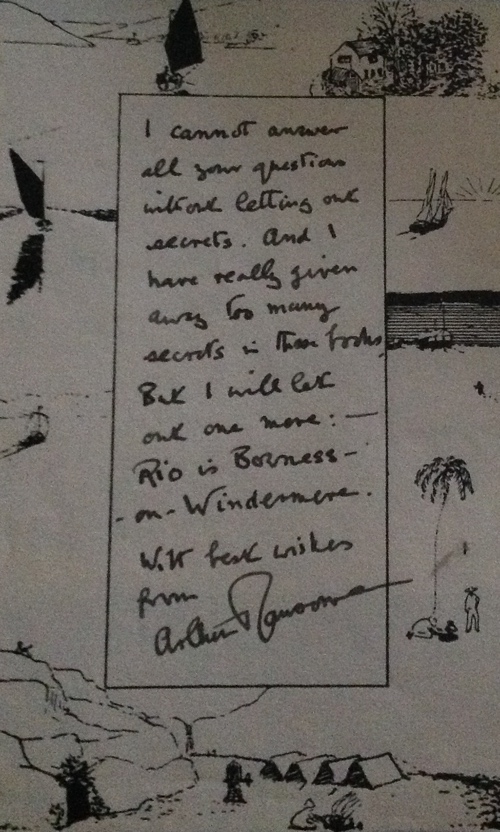 I cannot answer
all your questions
without letting out
secrets. And I
have really given
away too many
secrets in these books.
But I will let
out one more: —
Rio is Bowness-
-on-Windermere.
With best wishes
from
Arthur Ransome